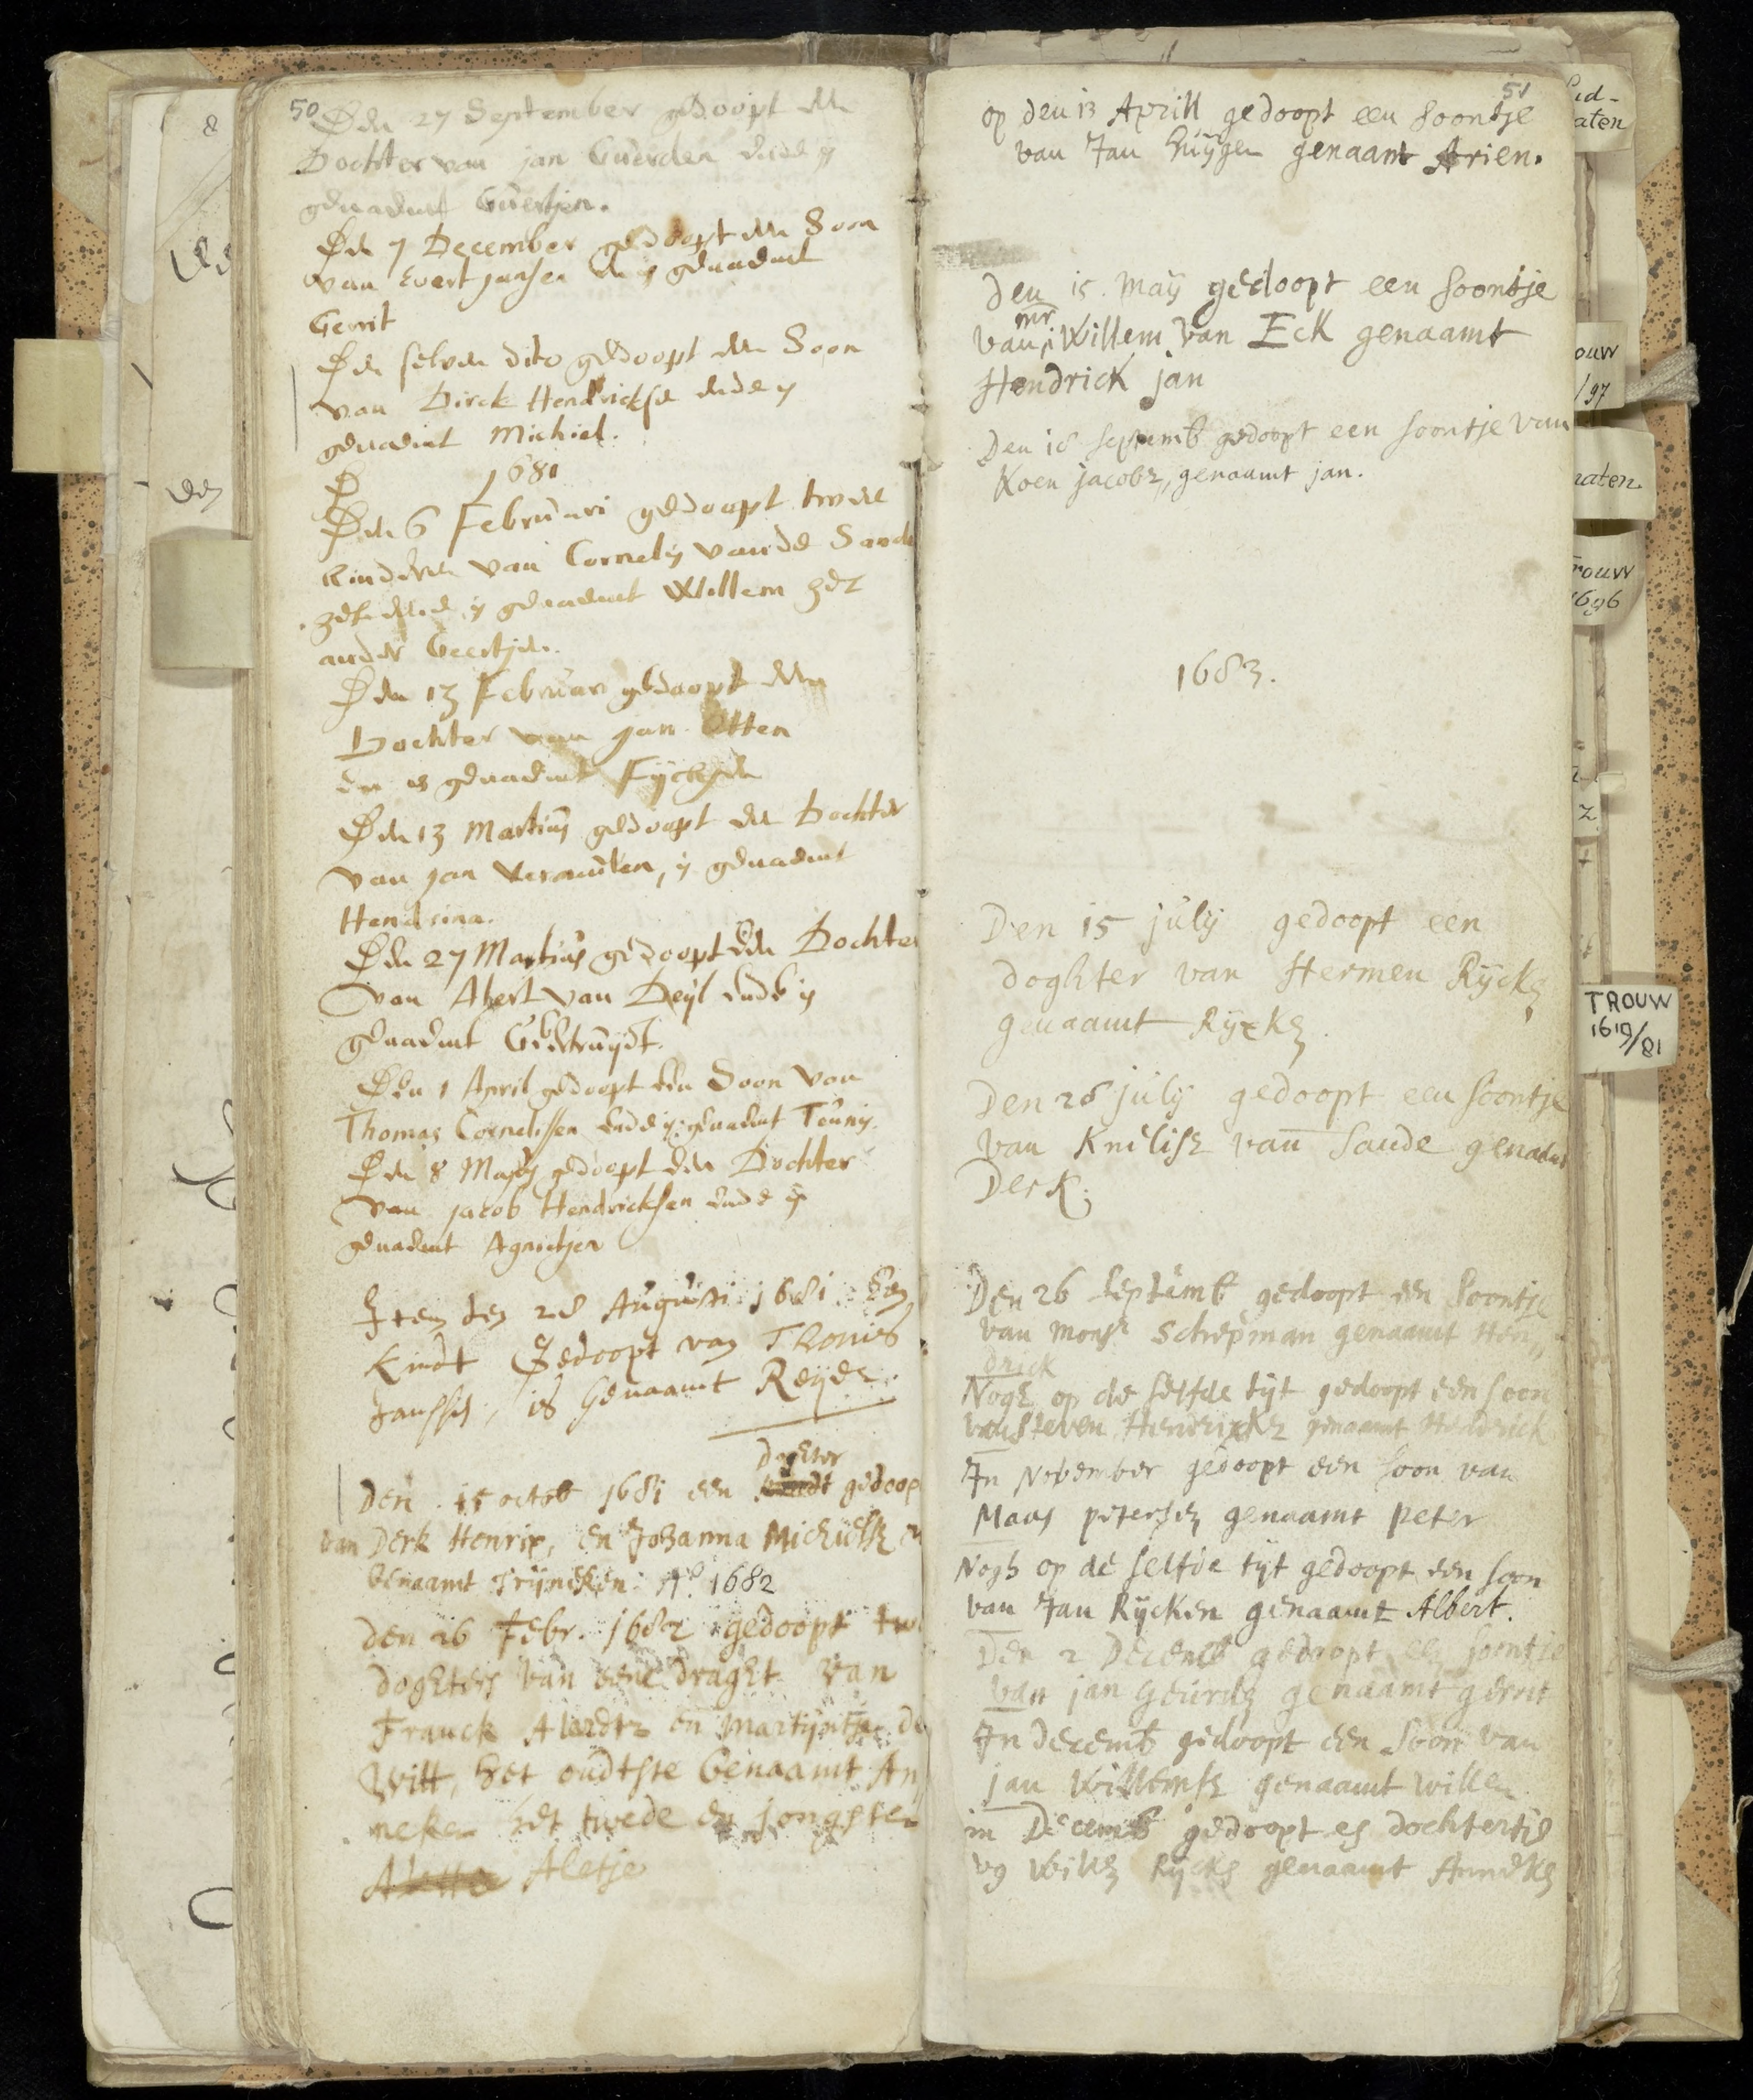 50
Den 27 September gedoopt een
Dochter van jan Guerden ende is
genaemt Guertjen.
Den 7 December gedoopt een Soon
van Evert jansen en is genaemt
Gerrit
Den selven dito gedoopt een Soon
van Dirck Hendrickse ende is
genaemt Michiel.
1681
Den 6 Februari gedoopt twee
kinderen van Cornelis vande Sande
het eene is genaemt Willem het
ander Geertjen.
Den 13 Februari gedoopt een
Dochter van jan Otten
en is genaemt
Den 13 Martius gedoopt een Dochter
van jan, is genaemt
Hendrina.
Den 27 Martius gedoopt een Dochter
van Abert van Deyl ende is
genaemt Geertruydt.
Den 1 April gedoopt een Soon van
Thomas Cornelissen ende is genaemt Teunis.
Den 8 Mayus gedoopt een Dochter
van jacob Hendricksen ende is
genaemt Agnietjen
Item den 28 Augusti 1681 Een
Kindt Gedoopt van Thonis
Janssen, is Genaamt Reijer.
Doghter
Den 15 octob 1681 een kindt gedoop
van Derk Henrix, en Johanna Michielsz
Genaamt Trijneken. Ao 1682
den 26 Febr. 1682 gedoopt twe
doghters van eene draght van
Franck Alardtz en Martijntje de
Witt, het oudtste Genaamt An
neken het twede en jongsten
Aletta Aletje
51
op den 13 Aprill gedoopt een soontje
van Jan Huijgen genaamt Arien.
Den 15. Maij gedoopt een soontje
mr
van Willem van Eck genaamt
Hendrick jan
Den 18 septemb gedoopt een soontje van
Koen jacobz, genaamt jan.
1683.
Den 15 julij gedoopt een
doghter van Hermen Rijckz
genaamt Rijxkz.
Den 28 julij gedoopt een soontje
van Knelisz van Sande genaamt
Derk.
Den 26 septemb gedoopt een soontje
van Monsr Schepman genaamt Hen
drick
Nogh op de selfde tijt gedoopt een soon
van Steven Hendrixkz genaamt Hendrick
In November gedoopt een soon van
Maas petersen genaamt peter
Nogh op de selfde tijt gedoopt een soon
van Jan Rijcken genaamt Albert.
Den 2 Decemb gedoopt een soontje
van jan Geurdz genaamt gerrit
In decemb gedoopt een soon van
jan Willemsz genaamt willem
in Decemb gedoopt en dochtertje
vn Willem Rijcks genaamt Annekz
ouw
/97
aten
naten.
rouw
1696
TROUW
1619/81